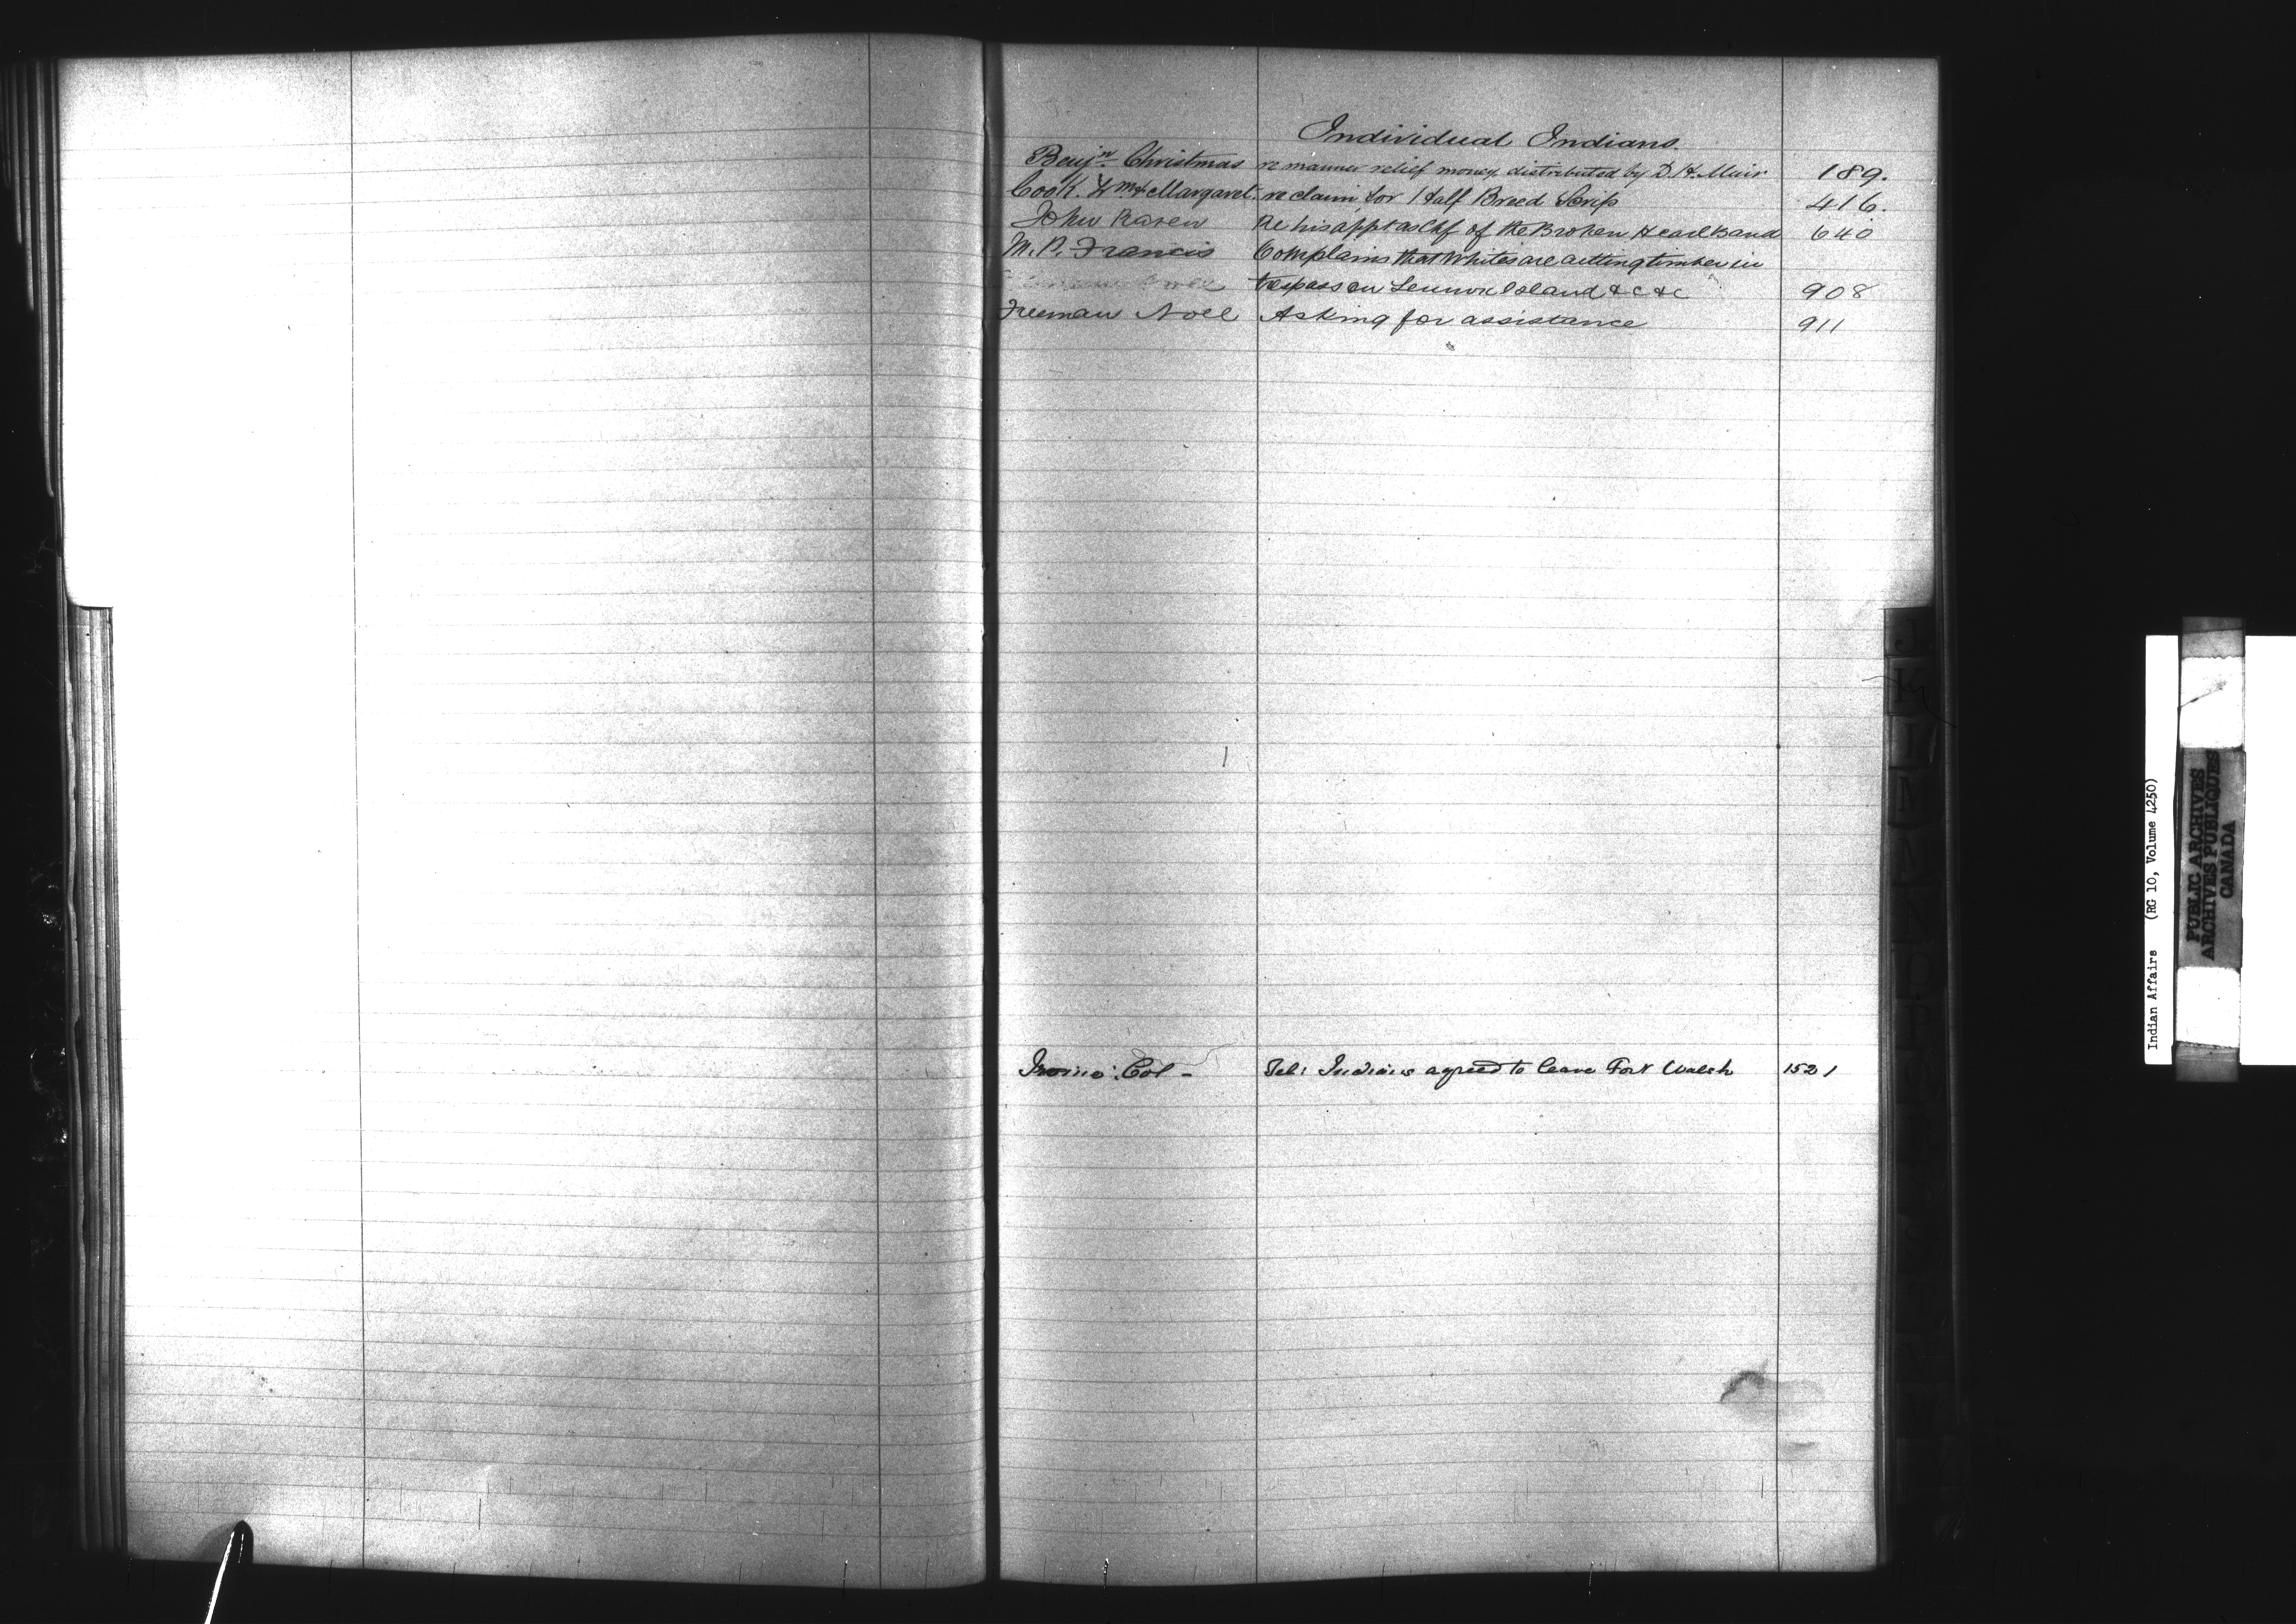 Individual Indians.
Benjn Christmas re manner relief money distributed by D. H. Muir 189.
Cook Wm & Margaret. re claim for Half Breed Scrip 416.
John Raven Re his appt as Chf of the Broken Head Band 640
M. P. Francis Complains that Whites are cutting timber in
trespass on Lennox Island &c &c 908
Freeman Noel Asking for assistance 911
Irvine Col - Tel: Indians agreed to leave Fort Walsh 1521
J
K
L
M
N
O
P
Indian Affairs (RG 10, Volume 4250)
PUBLIC ARCHIVES
ARCHIVES PUBLIQUES
CANADA